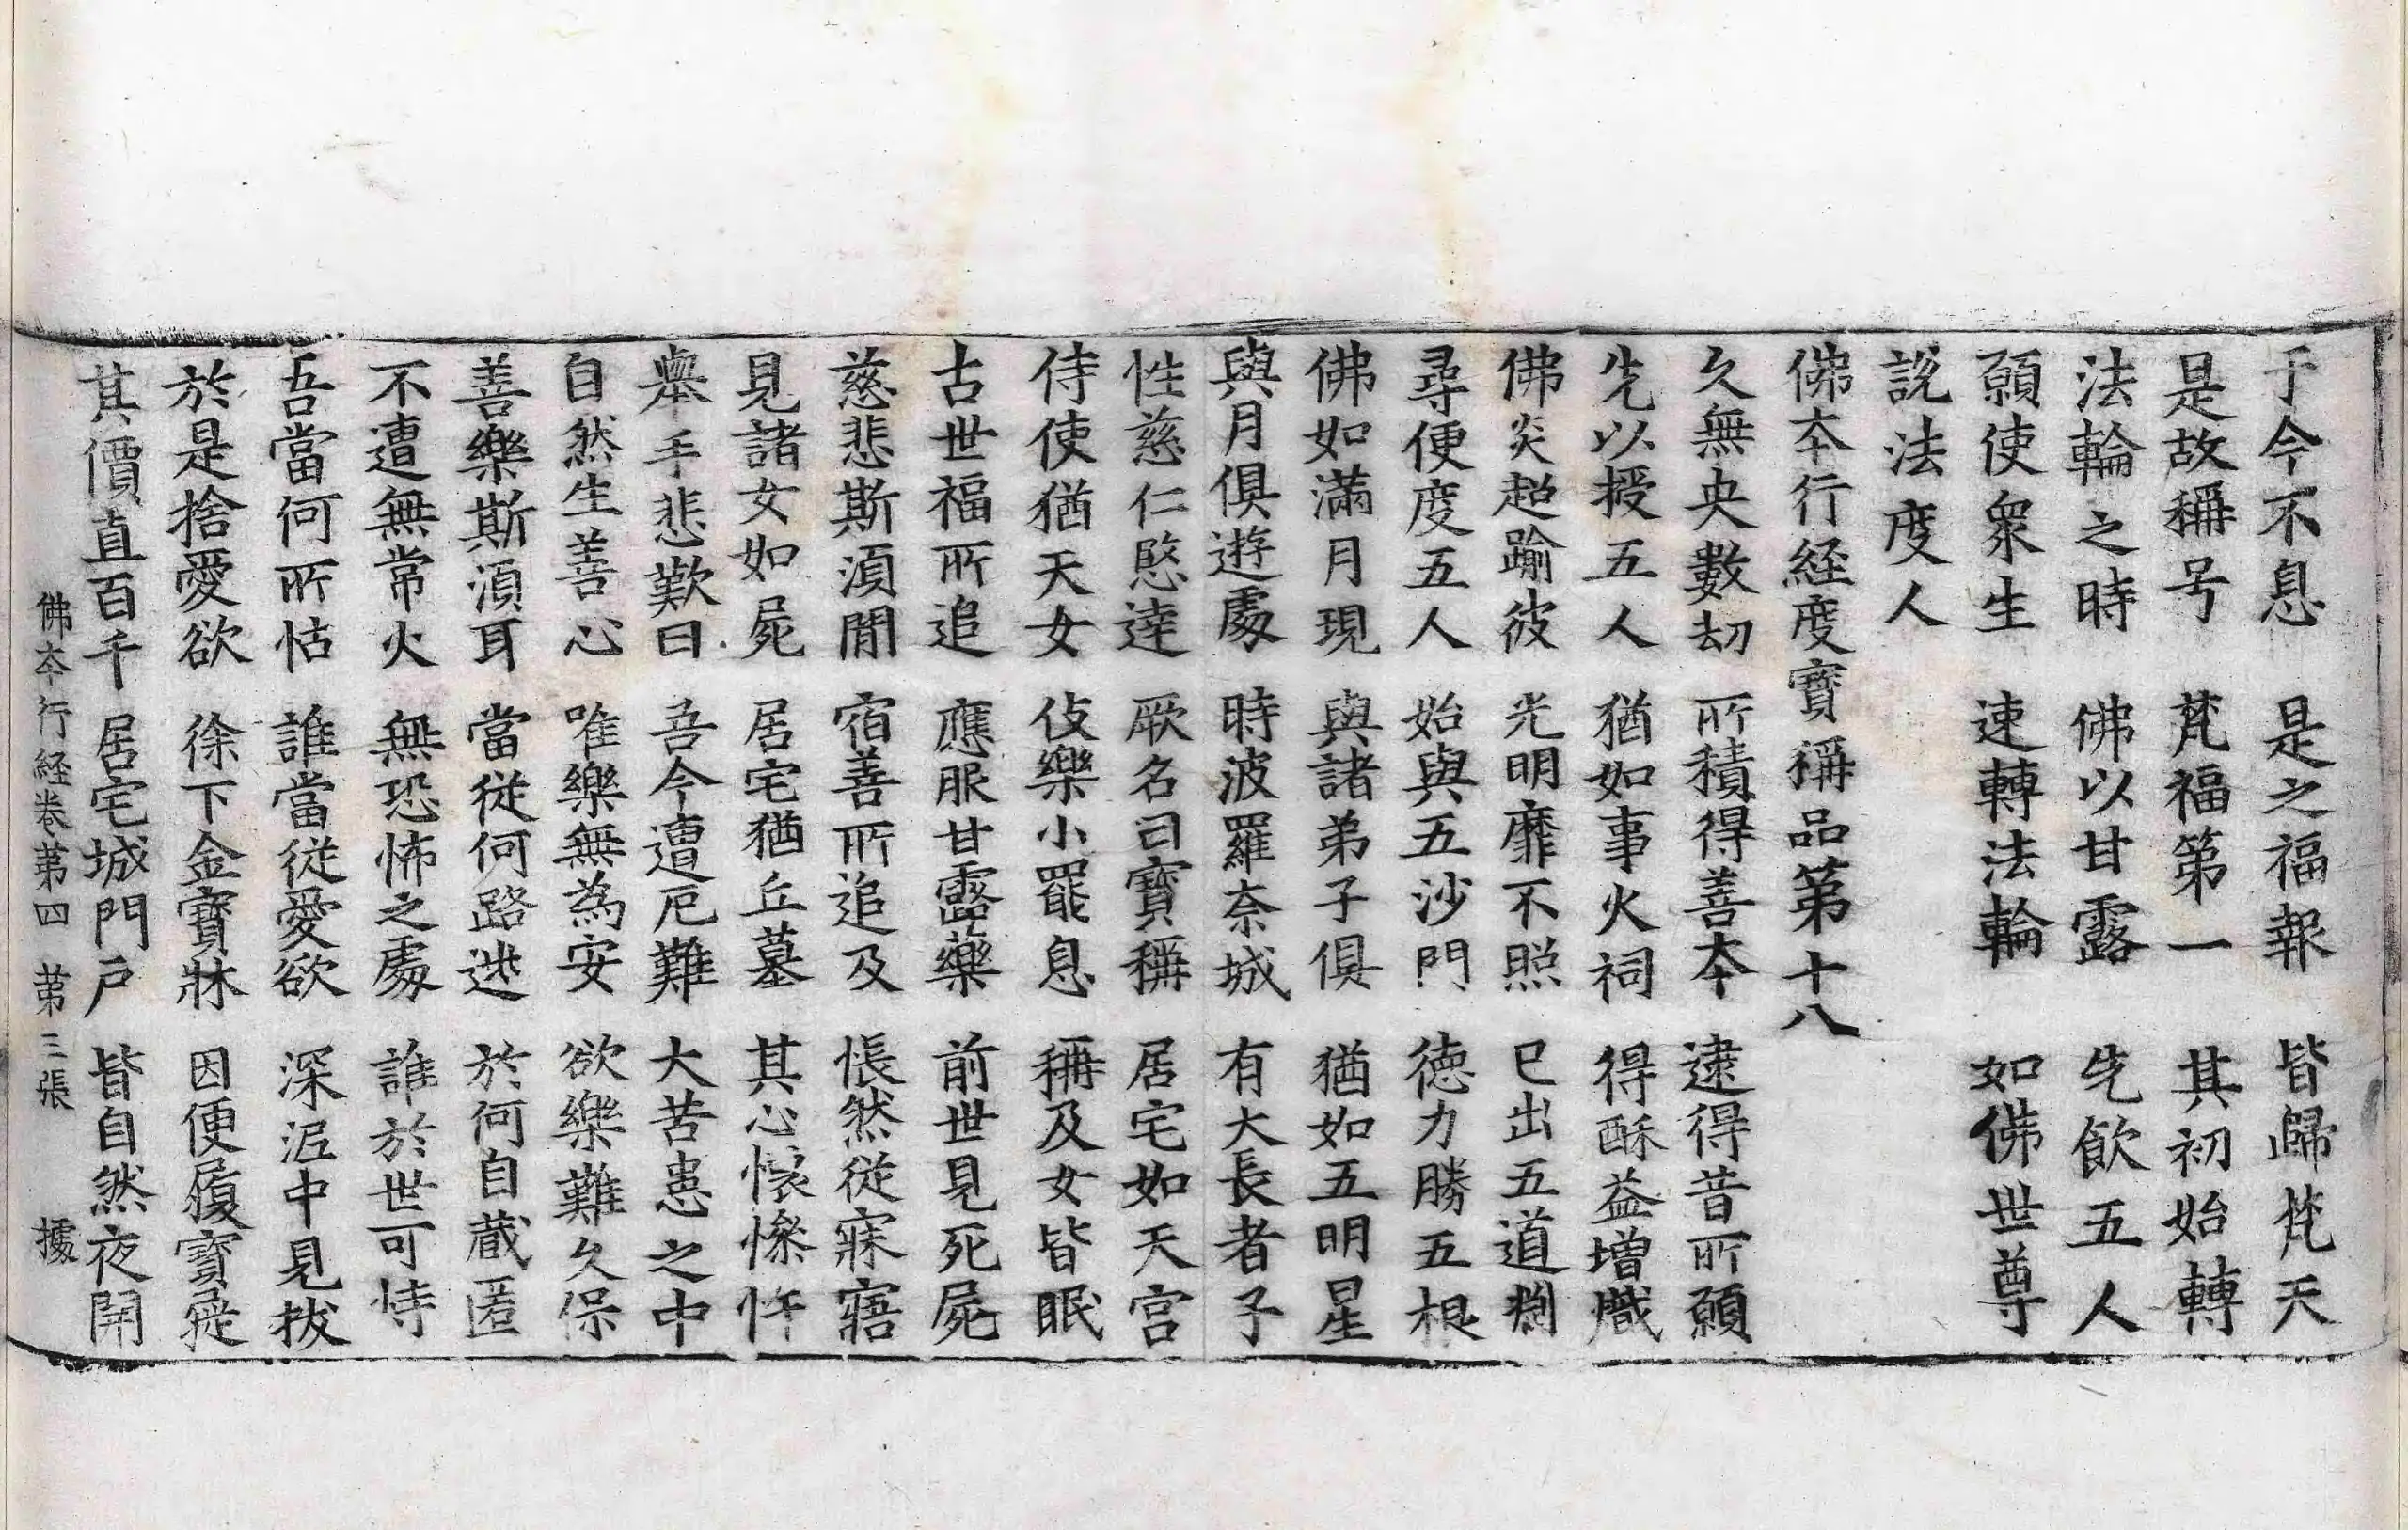 于今不息 是之福報 皆歸梵天
是故稱号 梵福第一 其初始轉
法輪之時 佛以甘露 先飮五人
願使衆生 速轉法輪 如佛世尊
說法度人
佛本行經度寶稱品第十八
久無央數劫 所積得善本 逮得昔所願
先以授五人 猶如事火祠 得酥益增熾
佛炎超踰彼 光明靡不照 已出五道淵
尋便度五人 始與五沙門 德力勝五根
佛如滿月現 與諸弟子俱 猶如五明星
與月俱遊處 時波羅奈城 有大長者子
性慈仁愍達 厥名曰寶稱 居宅如天宮
侍使猶天女 伎樂小罷息 稱及女皆眠
古世福所追 應服甘露藥 前世見死屍
慈悲斯湏閒 宿善所追及 悵然從寐寤
見諸女如屍 居宅猶丘墓 其心懷慘忤
擧手悲歎曰 吾今遭厄難 大苦患之中
自然生善心 唯樂無為安 欲樂難久保
善樂斯湏耳 當從何路逃 於何自藏匿
不遭無常火 無恐怖之處 誰於世可恃
吾當何所怙 誰當從愛欲 深泥中見拔
於是捨愛欲 徐下金寶牀 因便履寶屣
其價直百千 居宅城門戶 皆自然夜開
佛本行經卷第四 第三張 據